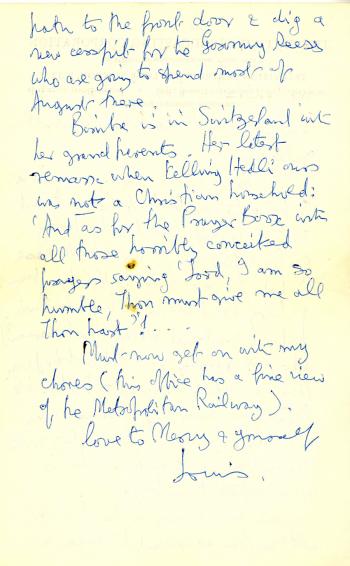 path to the front door & dig a
new cesspit for the Goronwy Reess
who are going to spend most of
August there.
Bimba is in Switzerland with
her grandparents. Her latest
remark when telling Hedli ours
was not a Christian household:
'And as for the Prayer Book with
all those horribly conceited
prayers saying "Lord, I am so
humble, Thou must give me all
Thou hast"'! . . . .
Must now get on with my
chores (this office has a fine view
of the Metropolitan Railway).
love to Mercy & yourself
Louis.